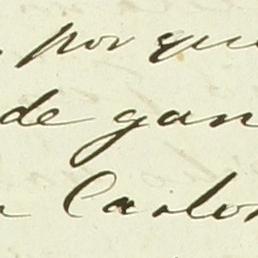 , por que
de gan
n Carlos